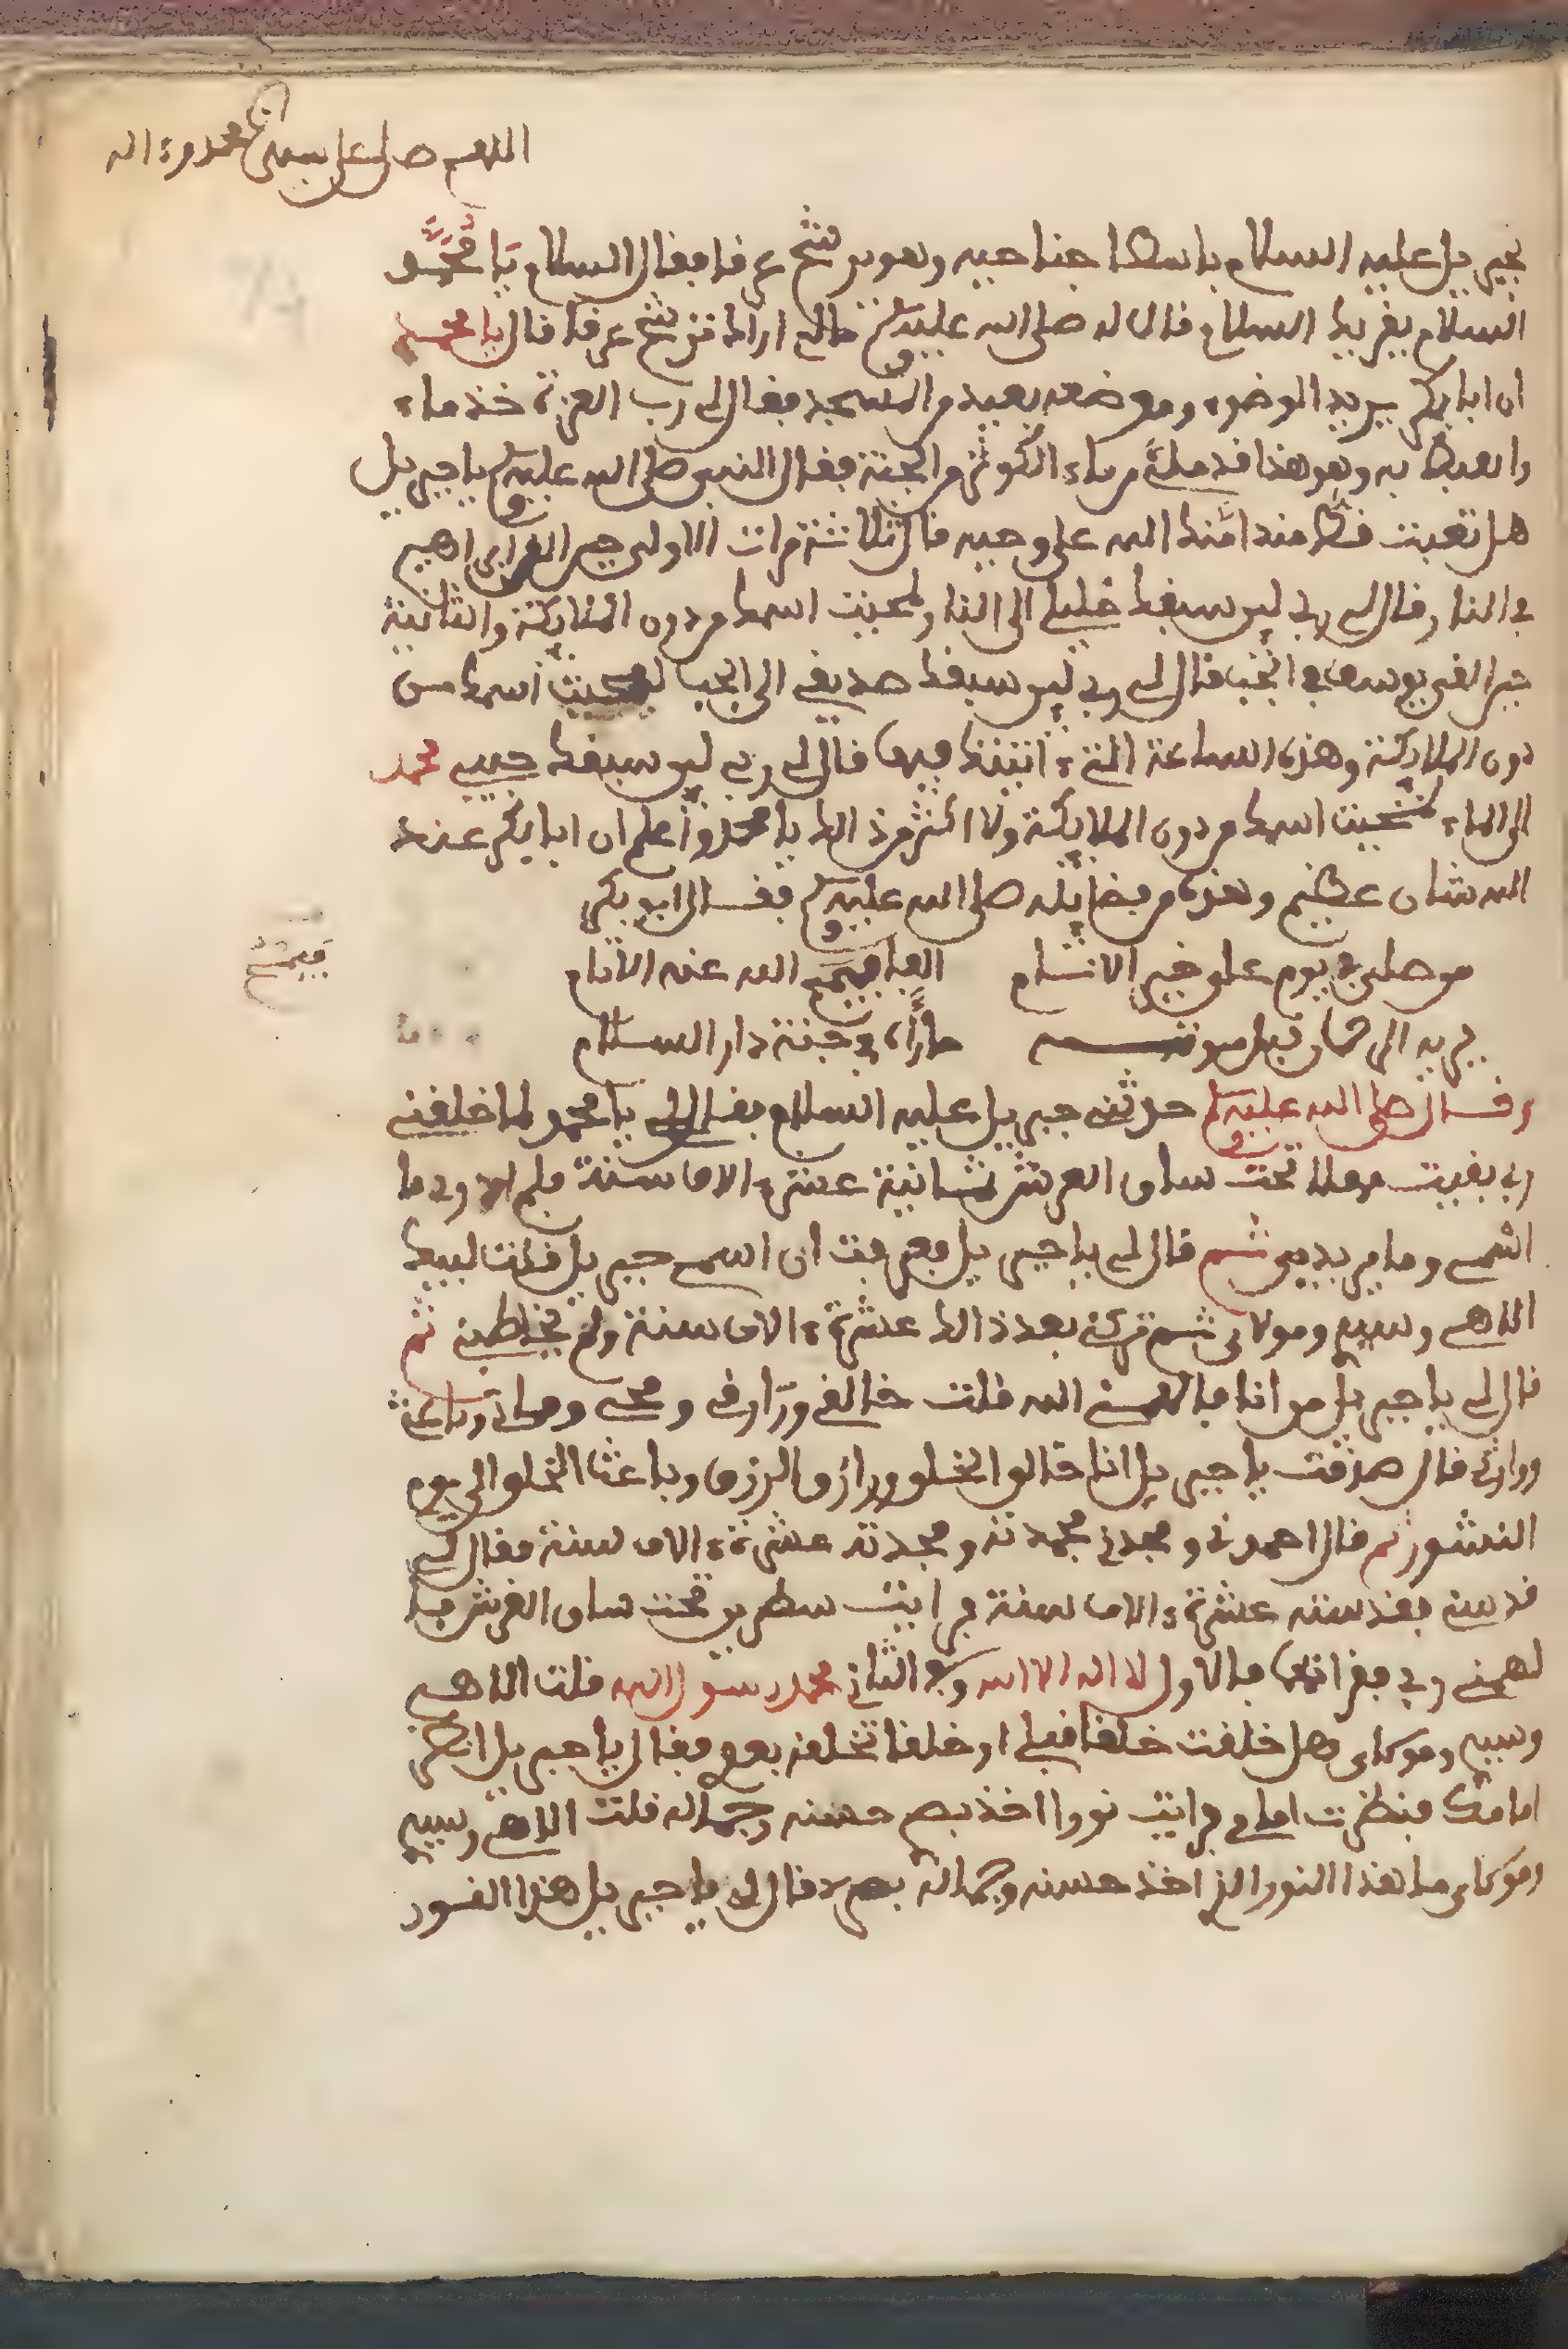 اللهم صل على سيدنا محمد وءاله
جبريل عليه السلام باسطا جناحيه وهو يرشح عرفا فقال السلام يا محمد
السلام يقريك السلام قال له صلى الله عليه وسلم مالي اراك ترشح عرفا قال يا محمد
ان ابا بكر يريد الوضوء وموضعه بعيد من المسجد فقال لي رب العزة خذ ماء
والعبط به وهو هذا قد ملئ من ماء الكوثر من الجنة فقال النبي صلى الله عليه وسلم يا جبريل
هل تعبت قط منذ امنك الله على وحيه قال ثلاث مرات الاولى حين القي ابراهيم
في النار وقال لي ربي لين سبقك خليلي الى النار لمحيت اسمك من دون الملايكة والثانية
حين القي يوسف في الجب قال لي ربي لين سبقك صديقي الى الجب لمحيت اسمك من
دون الملايكة وهذه الساعة التي اتيتك فيها قال لي ربي لين سبقك حبيبي محمد
الى الماء لمحيت اسمك من دون الملايكة ولا اكثر من ذالك يا محمد واعلم ان ابا بكر عند
الله شان عظيم وهذه من فضايله صلى الله عليه وسلم فقال ابو بكر
من صلى في يوم على خير الانام الفا فيمح الله عنه الاثام
يريه الرحمان قبل موته داراه في جنة دار السلام
فيمح
وقال صلى الله عليه وسلم حدثني جبريل عليه السلام فقال لي يا محمد لما خلقني
ربي بقيت مهللا تحت ساق العرش ثمانية عشرة الاف سنة فلم ادر ما
اسمي وما يريد بي ثم قال لي يا جبريل فعرفت ان اسمي جبريل فقلت لبيك
اللاهي وسيدي ومولاي ثم تركني بعد ذالك عشرة ءالاف سنة ولم يخاطبني ثم
قال لي يا جبريل من انا فالهمني الله قلت خالقي ورازقي ومحيي ومماتي وباعثي
ووارثي قال صدقت يا جبريل انا خالق الخلق ورازق الرزق وباعث الخلق الى يوم
النشور ثم قال احمدني ومجدني فحمدته ومجدته عشرة ءالاف سنة فقال لي
قدسني فقدسته عشرة ءالاف سنة فرايت سطرين تحت ساق العرش فا
لهمني ربي فقراتهما فالاول لا اله الا الله وفي الثاني محمد رسول الله قلت اللاهي
وسيدي ومولاي وهل خلقت خلقا قبلي او خلقا تخلقه بعدي فقال يا جبريل انظر
امامك فنظرت امامي فرايت نورا اخذ بصري حسنه وجماله قلت اللاهي وسيدي
ومولاي ما هذا النور الذي اخذ حسنه وجماله بصري قال لي يا جبريل هذا النور